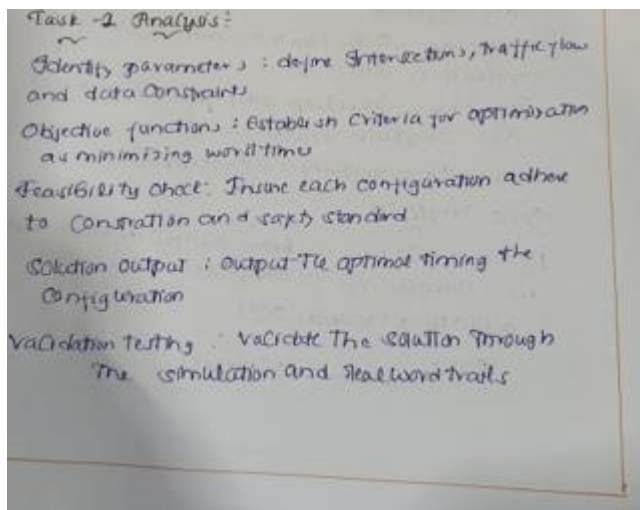 Task -2 Analysis:
Identify parameters : define Intersections, Traffic flow
and data Constraints
Objective functions : Establish Criteria for optimization
as minimizing worll time
Feasibility check: Insure each configuration adhere
to Constration and safety standard
Solution output : output The optimal timing the
Configuration
Validation testing : Validate The solution Through
The simulation and Real word trails